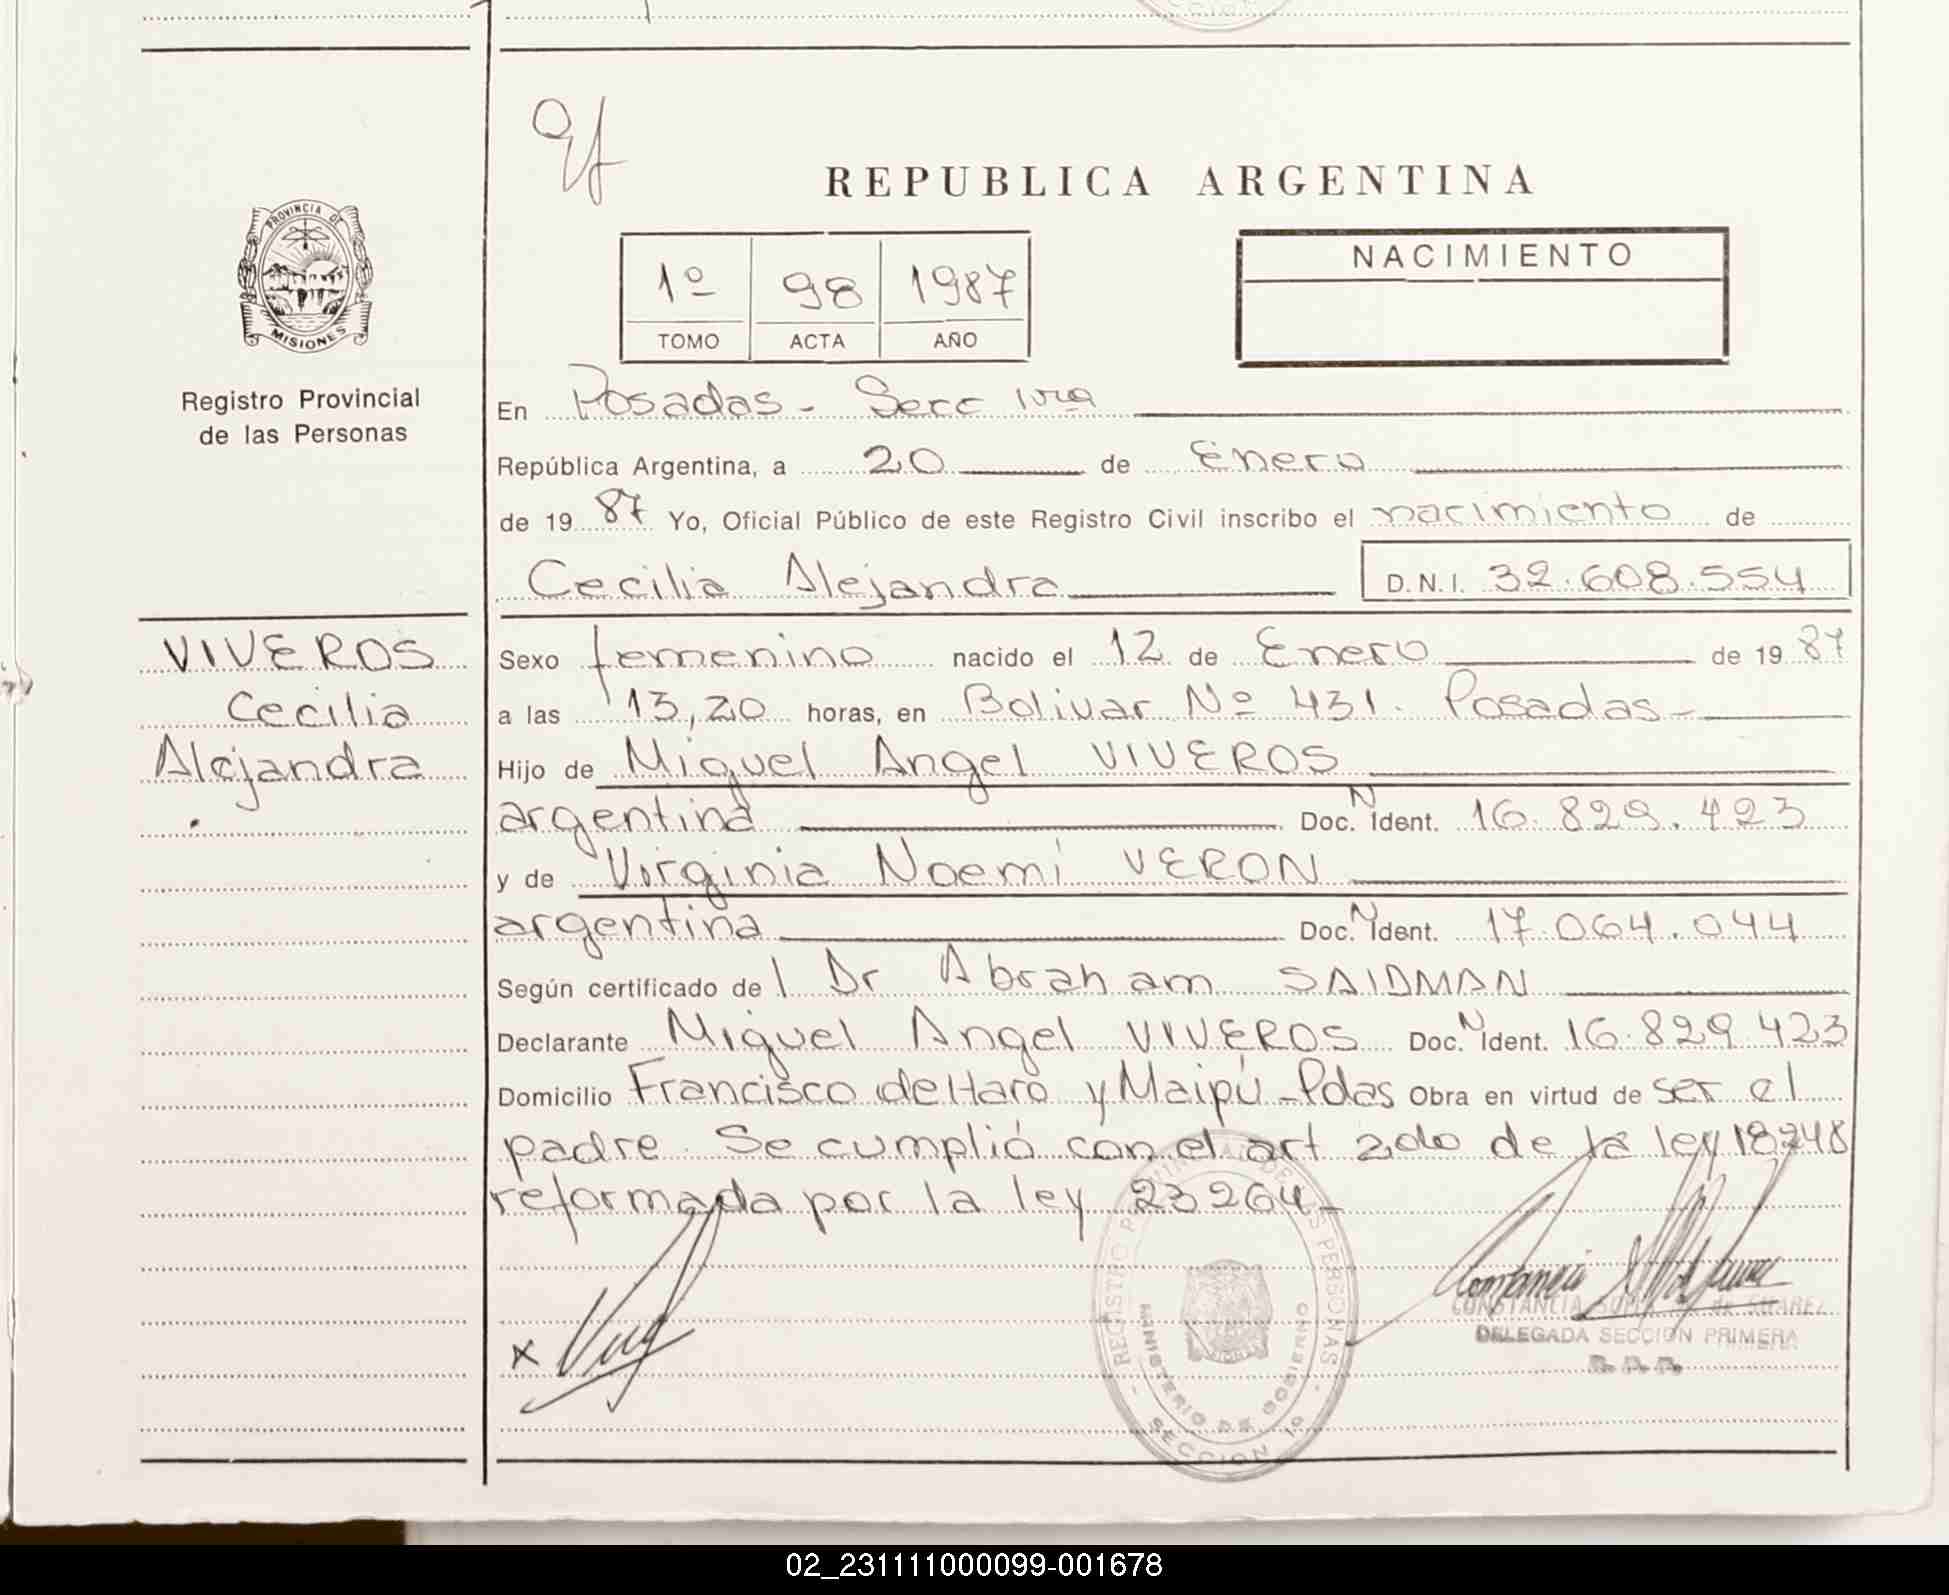 REPUBLICA ARGENTINA
PROVINCIA DE
MISIONES
Registro Provincial
de las Personas
1º 98 1987
TOMO ACTA AÑO
NACIMIENTO
En Posadas - Secc 1ra
República Argentina, a 20 de Enero
de 19 87 Yo, Oficial Público de este Registro Civil inscribo el nacimiento de
Cecilia Alejandra D.N.I. 32.608.554
VIVEROS
Cecilia
Alejandra
Sexo femenino nacido el 12 de Enero de 19 87
a las 13,20 horas, en Bolivar Nº 431. Posadas-
Hijo de Miguel Angel VIVEROS
argentina Doc. N Ident. 16.829.423
y de Virginia Noemi VERON
argentina Doc. N Ident. 17.064.044
Según certificado del Dr Abraham SAIDMAN
Declarante Miguel Angel VIVEROS Doc. N Ident. 16.829.423
Domicilio Francisco de Haro y Maipú - Pdas Obra en virtud de ser el
padre. Se cumplió con el art 2do de la ley 18248
reformada por la ley 23264-
REGISTRO PROVINCIAL DE LAS PERSONAS
MINISTERIO DE GOBIERNO
SECCION 1º
CONSTANCIA de SUAREZ
DELEGADA SECCION PRIMERA
02_231111000099-001678